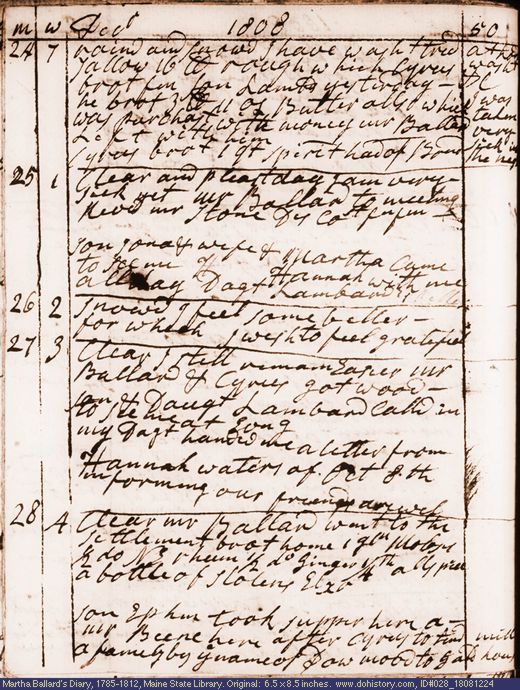 m w Decr 1808 50
24 7 raind and snowd I have wash tried at home
Tallow 16 lb rough which Cyrus washt
brot fm son Lambds yesterday &C
he brot 3 lb of Butter also which I was
was purchast with money mr Ballard taken
Left with him very
Cyrus brot 1 qt spirit had of sick in
the night
25 1 Clear and pleast day I am very
sick yet mr Ballard to meeting
Revd mr Stone Discost fm
son Jona & wife & Martha Came
to see me
all day Dagt Hannah with me
Lambard
26 2 snowd I feel some better
for which I wish to feel gratefull
27 3 Clear I still remain Easier mr
Ballard & Cyrus got wood
son & Daugt Lambard Calld in
to see me at Evng
my Dagt handed me a letter from
Hannah waters of Oct 8th
informing our friends are well
28 4 Clear mr Ballard went to the
settlement brot home 1 gln Molass
& do N rhum 1/2 do Ginger 1/4 allspice
a bottle of Stoters Elxr
son Ephm took supper here
mr Beene here after Cyrus to tend mill
a family by ye name of Dow moovd to
Martha Ballard's Diary, 1785-1812, Maine State Library. Original: 6.5 x 8.5 inches. www.dohistory.com, ID#028_18081224